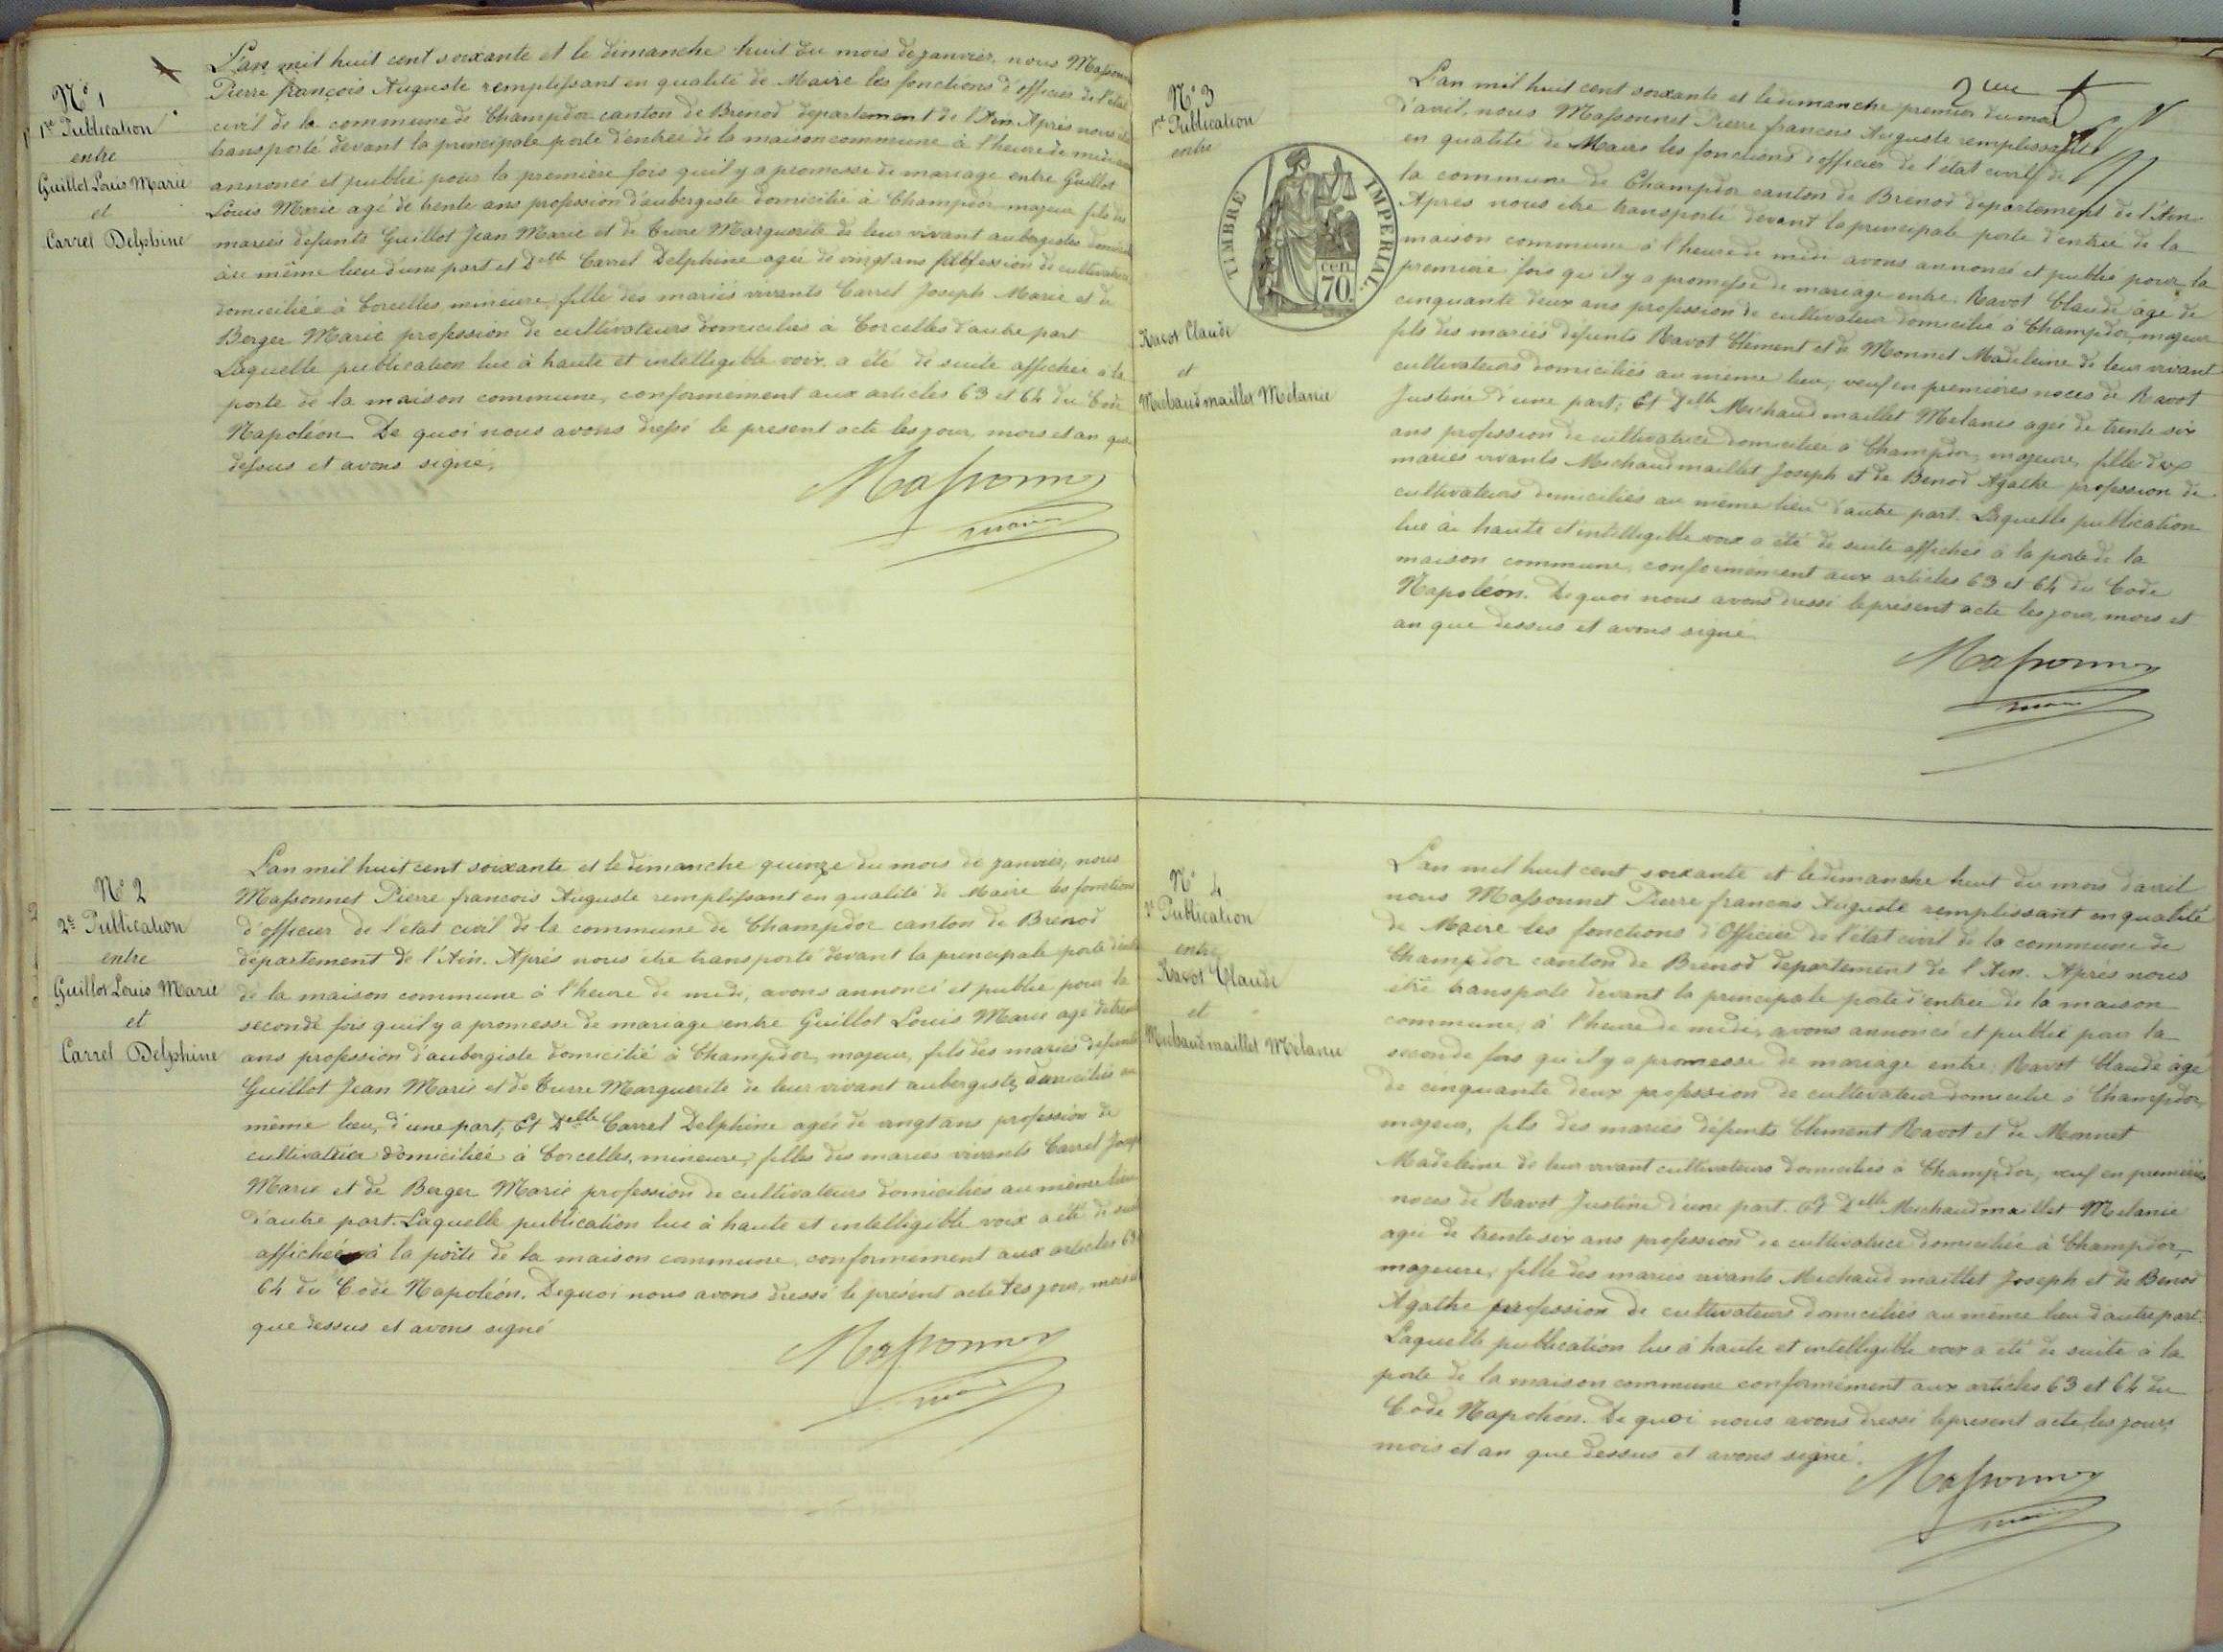 N° 1
1re Publication
entre
Guillot Louis Marie
et
Carrel Delphine
L'an mil huit cent soixante et le dimanche huit du mois de janvier, nous Massonnet
Pierre françois Auguste remplissant en qualité de Maire les fonctions d'officier de l'état
civil de la commune de Champdor canton de Brenod departement de l'Ain. Après nous être
transporté devant la principale porte d'entrée de la maison commune à l'heure de midi
annoncé et publié pour la première fois qu'il y a promesse de mariage entre Guillot
Louis Marie agé de trente ans profession d'aubergiste domicilié à Champdor majeur fils des
mariés defunts Guillot Jean Marie et de Curre Marguerite de leur vivant aubergistes
au même lieu d'une part et Delle Carrel Delphine agée de vingt ans profession de cultivatrice
domiciliée à Corcelles, mineure, fille des mariés vivants Carrel Joseph Marie et de
Berger Marie profession de cultivateurs domiciliés à Corcelles d'autre part
Laquelle publication lue à haute et intelligible voix, a été de suite affichée à la
porte de la maison commune, conformement aux articles 63 et 64 du Code
Napoléon. De quoi nous avons dressé le present acte les jour, mois et an que
dessus et avons signé,
Massonnet
maire
N° 2
2e Publication
entre
Guillot Louis Marie
et
Carrel Delphine
L'an mil huit cent soixante et le dimanche quinze du mois de janvier, nous
Massonnet Pierre francois Auguste remplissant en qualité de Maire les fonctions
d'officier de l'état civil de la commune de Champdor canton de Brenod
département de l'Ain. Après nous être transporté devant la principale porte d'entrée
de la maison commune à l'heure de midi, avons annoncé et publié pour la
seconde fois qu'il y a promesse de mariage entre Guillot Louis Marie agé de trente
ans profession d'aubergiste domicilié à Champdor, majeur, fils des mariés defunts
Guillot Jean Marie et de Curre Marguerite de leur vivant aubergistes domiciliés au
même lieu, d'une part, Et Delle Carrel Delphine agée de vingt ans profession de
cultivatrice domiciliée à Corcelles, mineure, fille des mariés vivants Carrel Joseph
Marie et de Berger Marie profession de cultivateurs domiciliés au même lieu
d'autre part. Laquelle publication lue à haute et intelligible voix a été de suite
affichée à la porte de la maison commune, conformement aux articles 63
64 du Code Napoléon. De quoi nous avons dressé le présent acte les jour, mois
que dessus et avons signé
Massonnet
maire
N° 3
1re Publication
entre
TIMBRE IMPERIAL
cen
70.
Ravot Claude
et
Michaud maillet Mélanie
L'an mil huit cent soixante et le dimanche premier du mois
d'avril, nous Massonnet Pierre francois Auguste remplissant
en qualité de Maire les fonctions d'officier de l'état civil de
la commune de Champdor canton de Brenod departement de l'Ain
Après nous être transporté devant la principale porte d'entrée de la
maison commune à l'heure de midi avons annoncé et publié pour la
première fois qu'il y a promesse de mariage entre Ravot Claude âgé de
cinquante deux ans profession de cultivateur domicilié à Champdor majeur
fils des mariés defunts Ravot Clément et de Monnet Madeleine de leur vivant
cultivateurs domiciliés au même lieu, veuf en premières noces de Ravot
Justine d'une part, Et Delle Michaud maillet Mélanie agée de trente six
ans profession de cultivatrice domiciliée à Champdor, majeure, fille des
mariés vivants Michaud maillet Joseph et de Benod Agathe profession de
cultivateurs domiciliés au même lieu d'autre part. Laquelle publication
lue à haute et intelligible voix a été de suite affichée à la porte de la
maison commune, conformement aux articles 63 et 64 du Code
Napoléon. De quoi nous avons dressé le présent acte les jour, mois et
an que dessus et avons signé
Massonnet
maire
N° 4
2e Publication
entre
Ravot Claude
et
Michaud maillet Mélanie
L'an mil huit cent soixante et le dimanche huit du mois d'avril
nous Massonnet Pierre francois Auguste remplissant en qualité
de Maire les fonctions d'Officier de l'état civil de la commune de
Champdor canton de Brenod departement de l'Ain. Après nous
être transporté devant la principale porte d'entrée de la maison
commune, à l'heure de midi, avons annoncé et publié pour la
seconde fois qu'il y a promesse de mariage entre, Ravot Claude âgé
de cinquante deux profession de cultivateur domicilié à Champdor,
majeur, fils des mariés défunts Clément Ravot et de Monnet
Madeleine de leur vivant cultivateurs domiciliés à Champdor, veuf en premières
noces de Ravot Justine d'une part. Et Delle Michaud maillet Mélanie
agée de trente six ans profession de cultivatrice domiciliée à Champdor,
majeure, fille des mariés vivants Michaud maillet Joseph et de Benod
Agathe profession de cultivateurs domiciliés au même lieu d'autre part.
Laquelle publication lue à haute et intelligible voix a été de suite à la
porte de la maison commune conformément aux articles 63 et 64 du
Code Napoléon. De quoi nous avons dressé le présent acte, les jour,
mois et an que dessus et avons signé.
Massonnet
maire